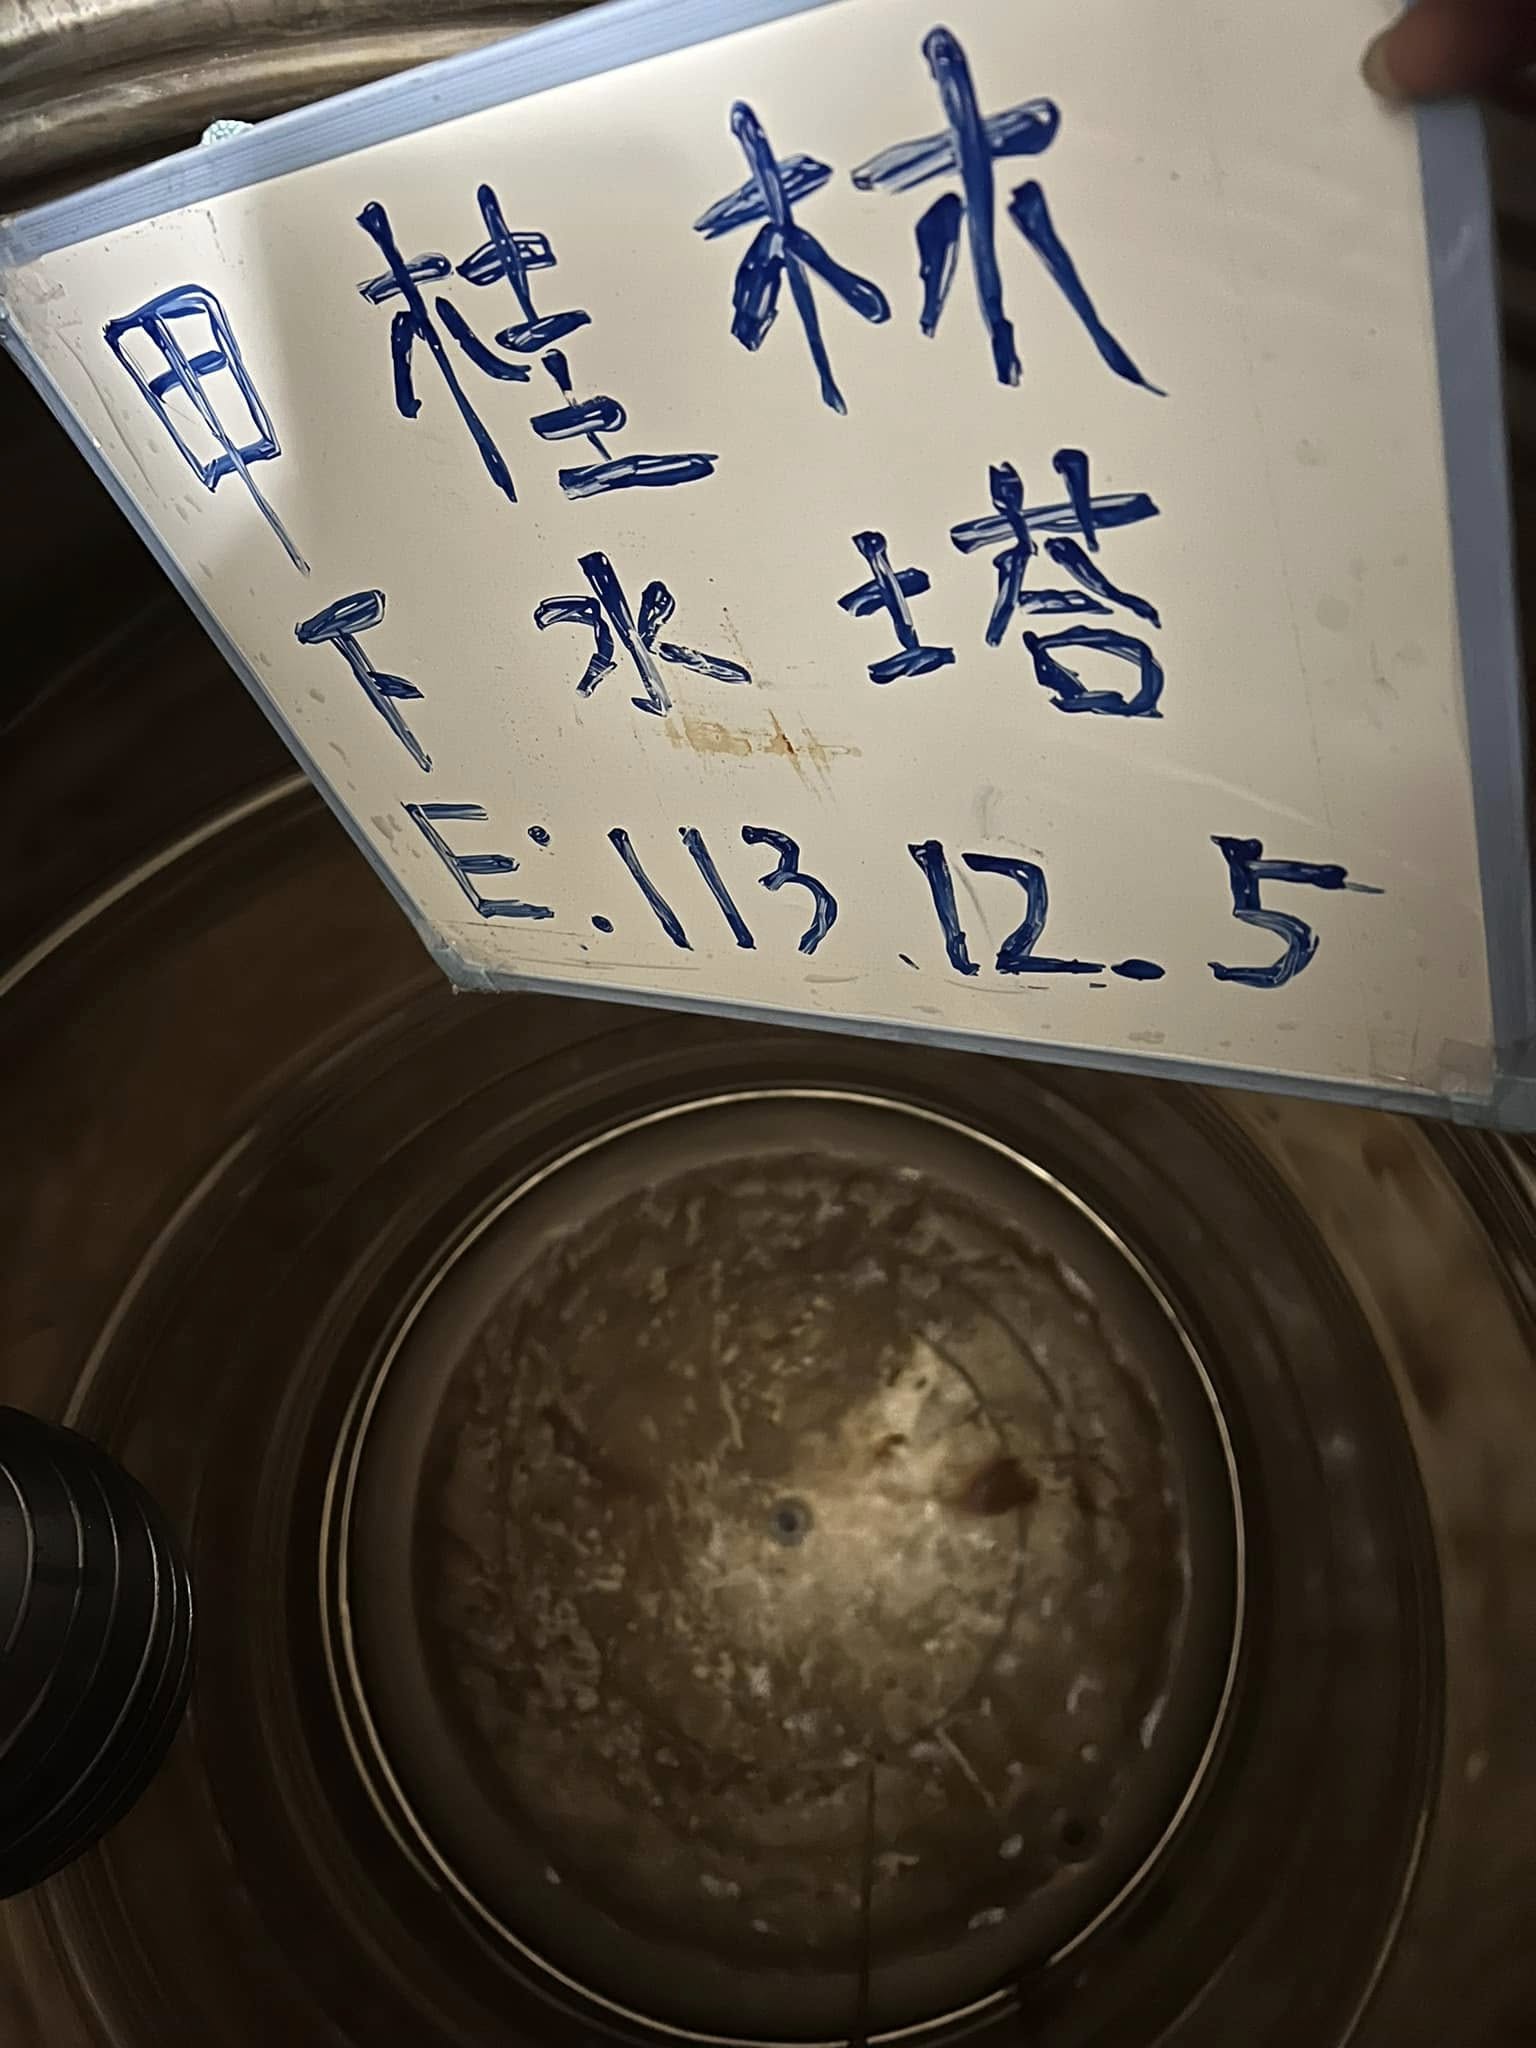 甲桂林
下水塔
E:.113.12.5